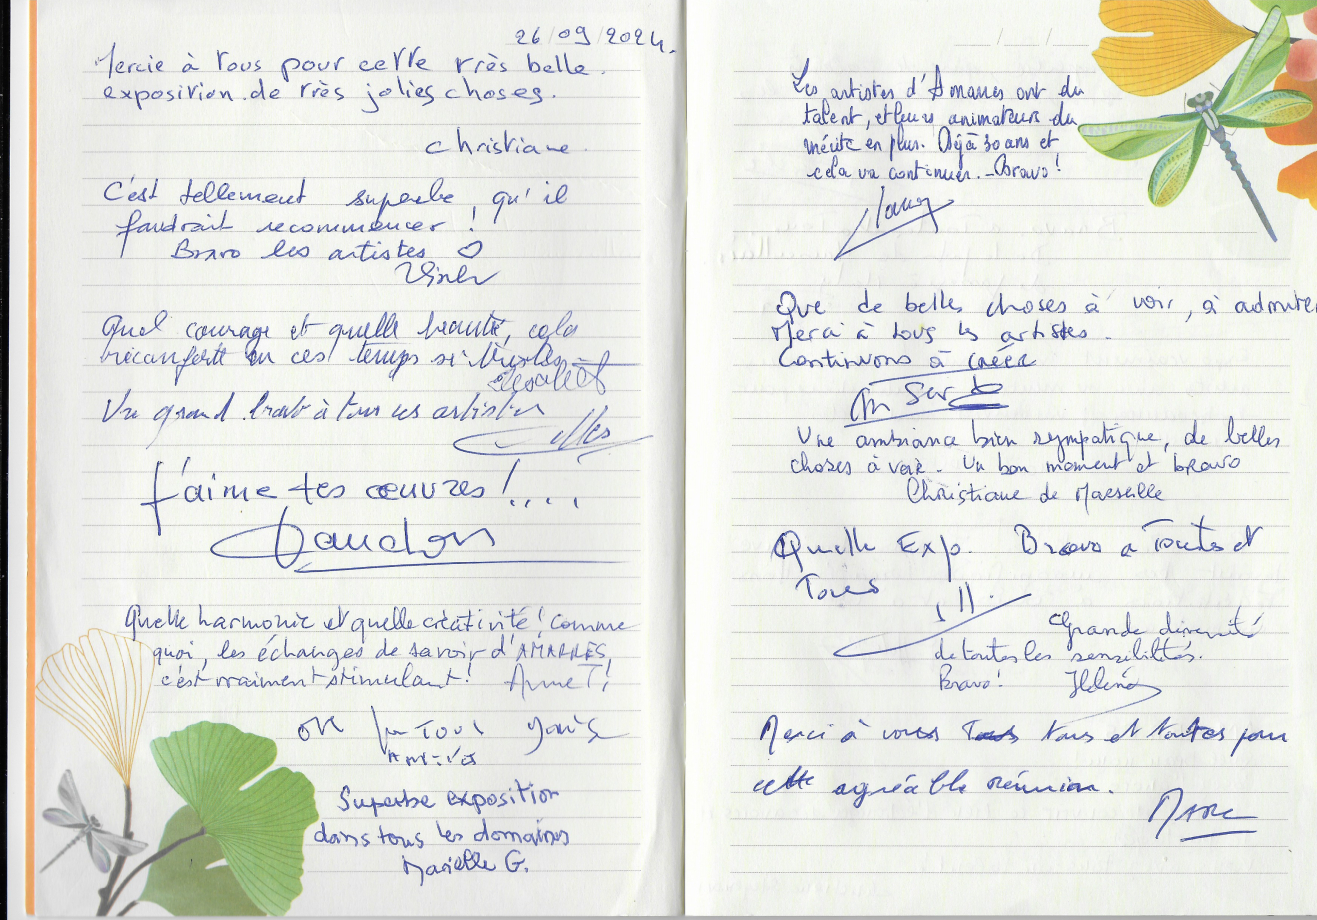 26/09/2024.
Mercie à tous pour cette très belle.
exposition.de très jolies choses.
christiane.
C'est tellement superbe, qu'il
faudrait recommencer !
Bravo les artistes ♡
Quel courage et quelle beauté, cela
réconforte en ces temps si
Un grand bravo à tous ces artistes
J'aime tes œuvres !....
Quelle harmonie et quelle créativité ! Comme
quoi, les échanges de savoir d'AMARRES,
c'est vraiment stimulant ! Anne T!
OK
Superbe exposition
dans tous les domaines
Marielle G.
Les artistes d'Amarres ont du
talent, et leurs animateurs du
mérite en plus. Déjà 30 ans et
cela va continuer. _Bravo !
Que de belles choses à voir, à admirer
Merci à tous les artistes.
Continuons à créer
Une ambiance bien sympatique, de belles
choses à voir. Un bon moment et bravo
Christiane de Marseille
Quelle Exp. Bravo a Toutes et
Tous
Grande diversité
de toutes les sensibilités.
Bravo ! Hélène
Merci à vous tous et toutes pour
cette agréable réunion.
MARC